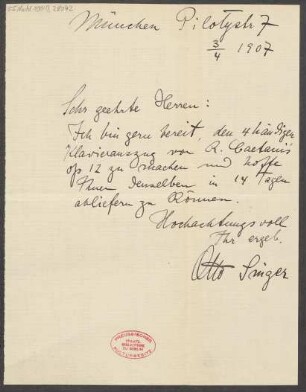 München Pilotystr 7
3/4 1907
Sehr geehrte Herren:
Ich bin gern bereit, den 4 händigen
Klavierauszug von R. Caetanis
op 12 zu machen und hoffe
Ihnen denselben in 14 Tagen
abliefern zu können.
Hochachtungsvoll
Ihr ergeb.
Otto Singer